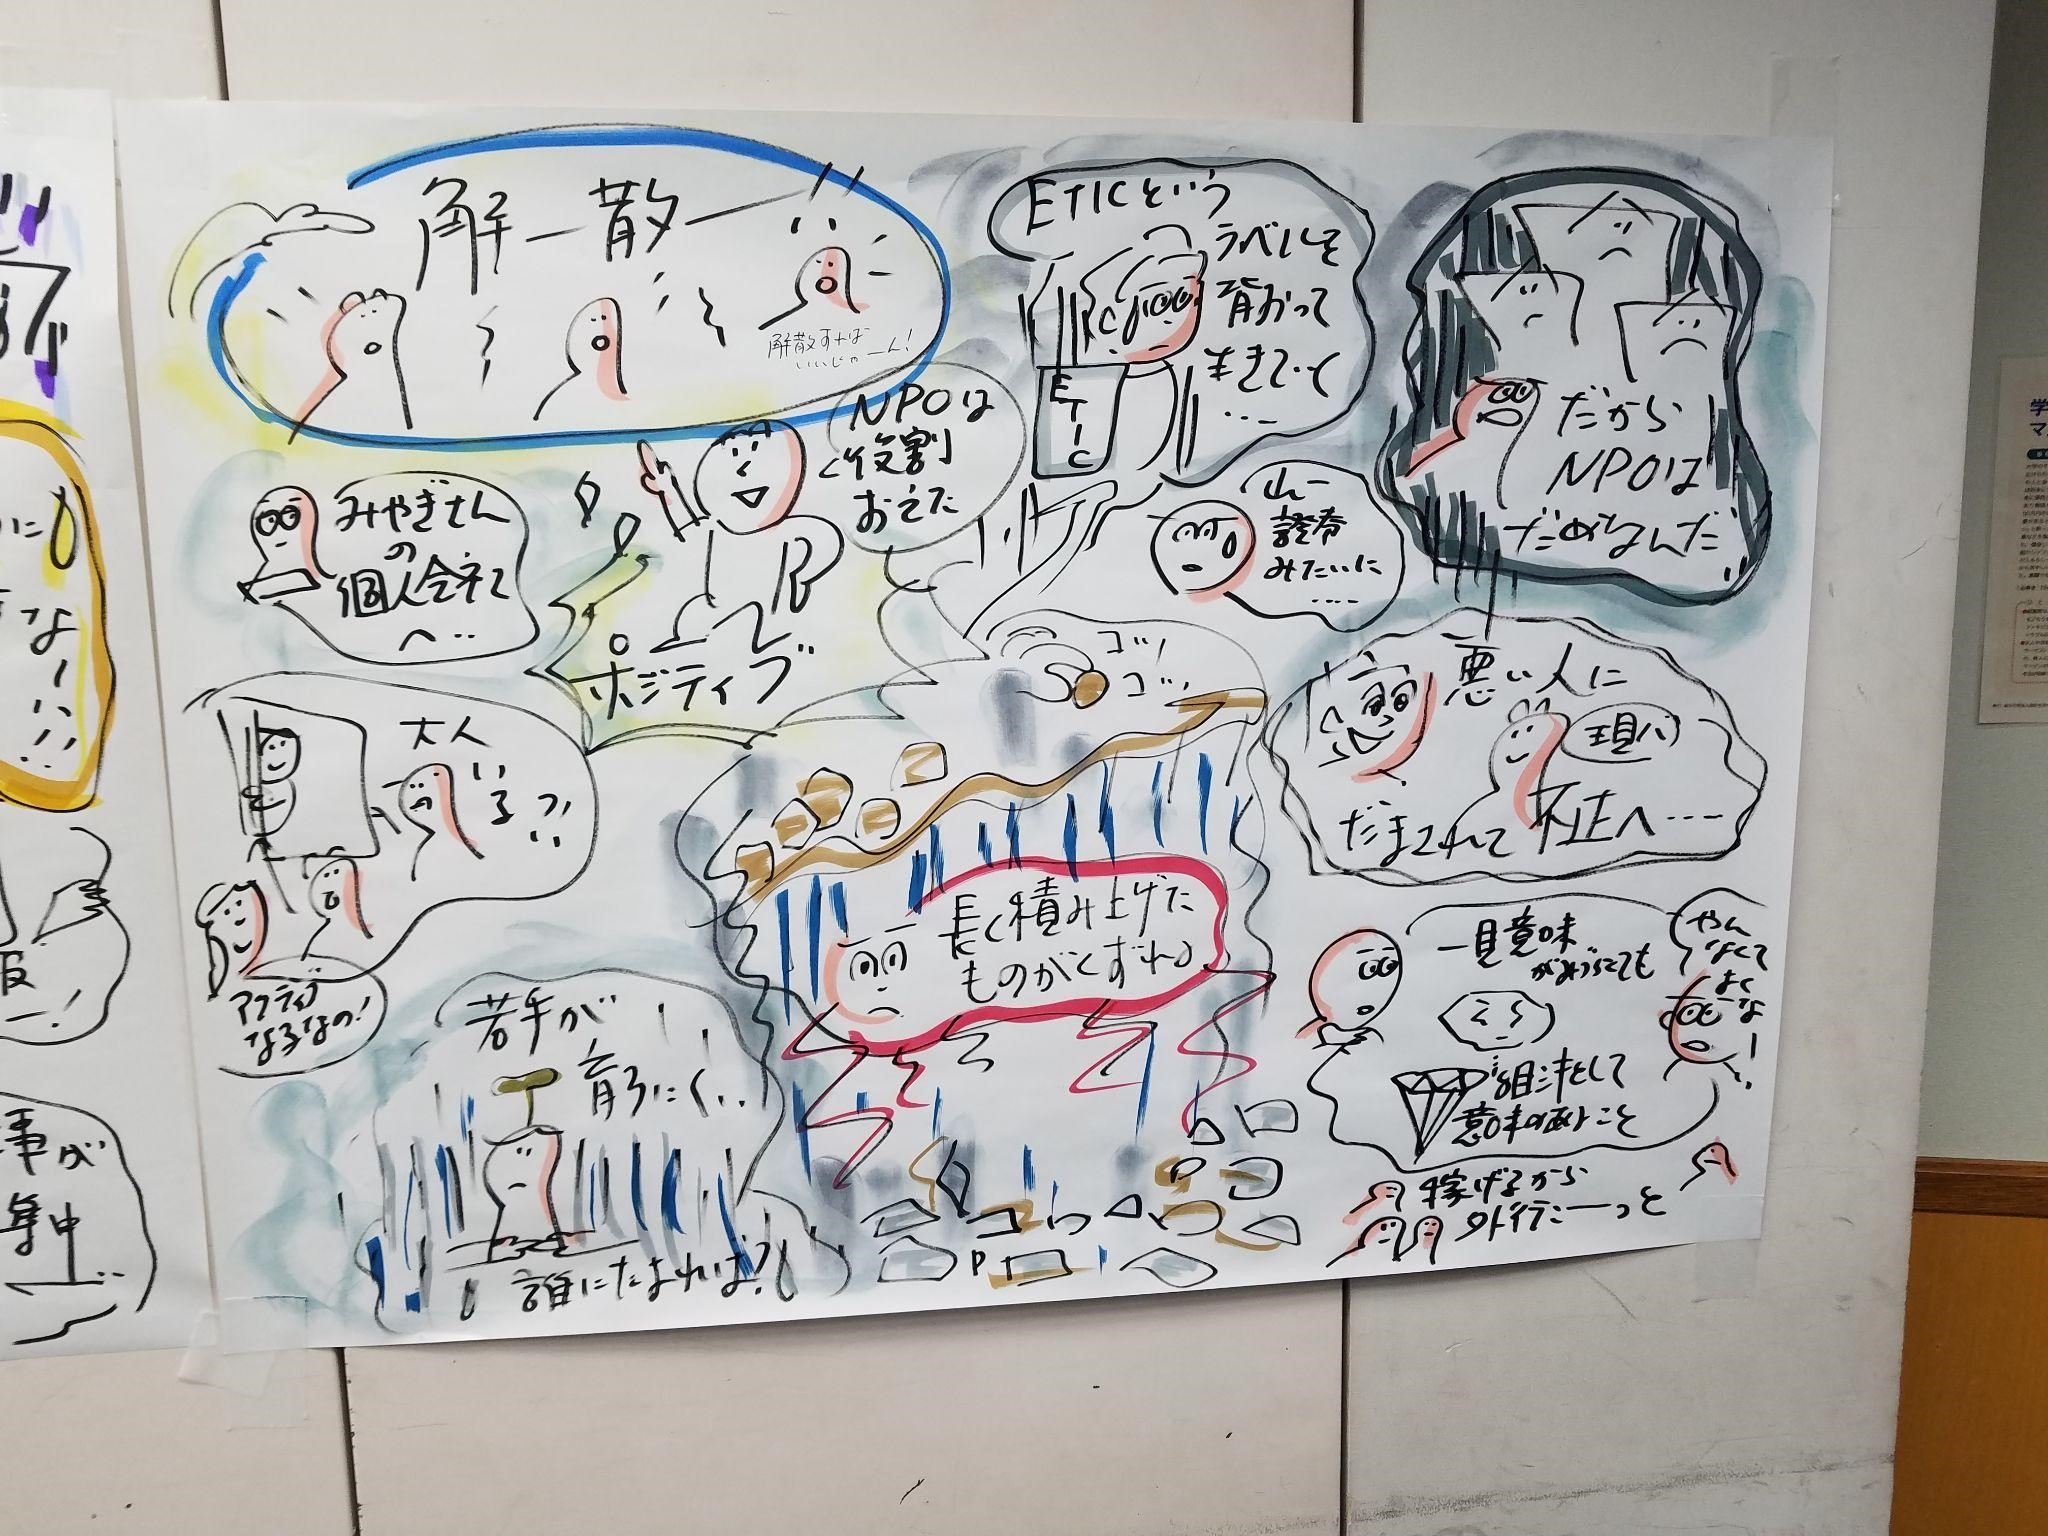 解ー散ー!!
解散すれば
いいじゃーん!
ETICという
ラベルを
背おって
生きていく
....
ETIC
だから
NPOは
だめなんだ
NPOは
役割
おえた
みやぎさん
の
個人会社
へ…
ポジティブ
山一
證券
みたいに
....
コツ
コツ
悪い人に
だまされて
不正へ....
大人
いる?!
アクティブ
なるなの!
長く積み上げた
ものがくずれる
若手が
育ちにくく..
誰にたよれば?
一見意味
がなくても
組織として
意味のあること
やん
なくて
よく
な
ー!
稼げるから
外行こーっと
事が
集中